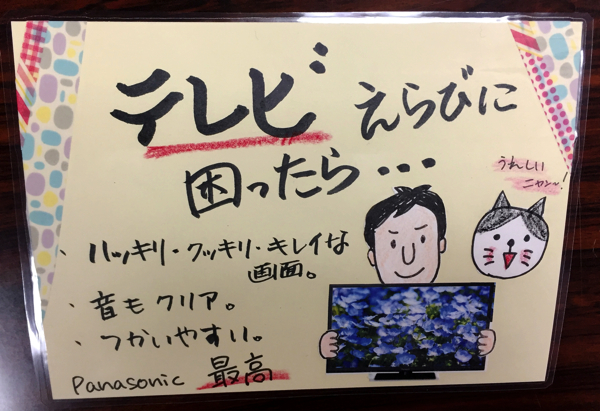 テレビ えらびに
困ったら・・・
うれしい
ニャン〜!
・ハッキリ・クッキリ・キレイな
画面。
・音もクリア。
・つかいやすい。
Panasonic 最高